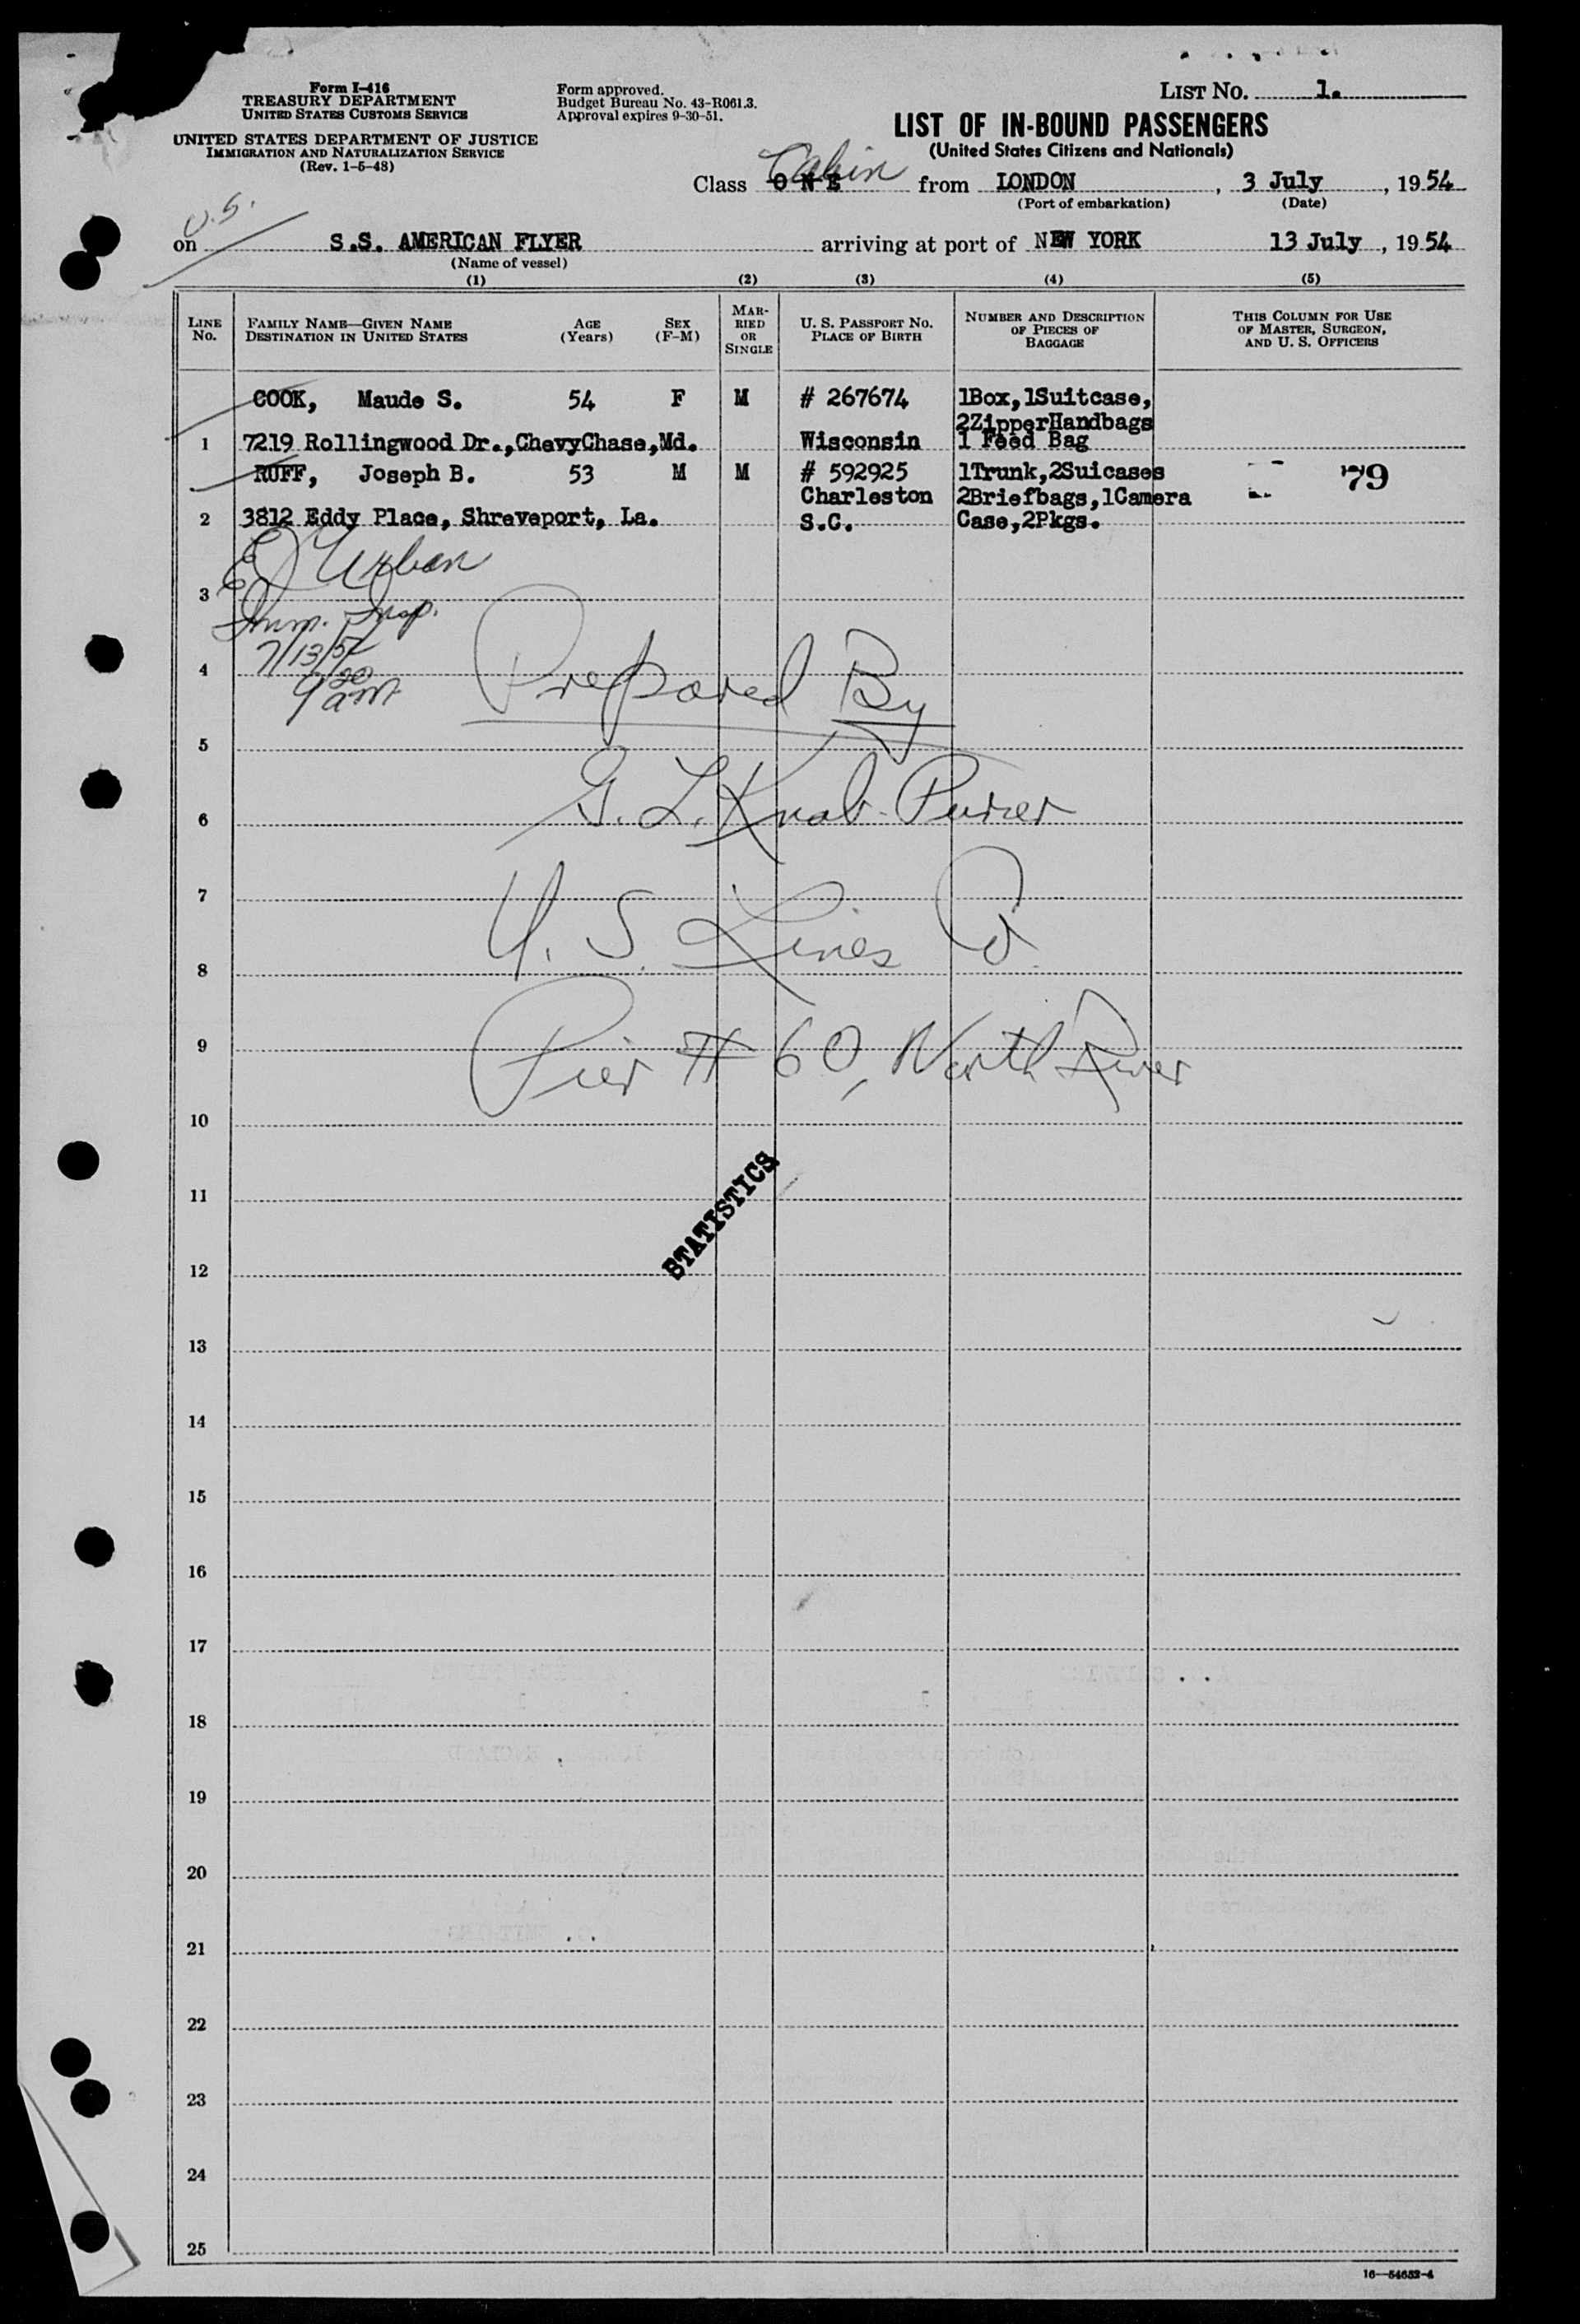 Form I-416
TREASURY DEPARTMENT
UNITED STATES CUSTOMS SERVICE
UNITED STATES DEPARTMENT OF JUSTICE
IMMIGRATION AND NATURALIZATION SERVICE
(Rev. 1-5-48)
Form approved.
Budget Bureau No. 43-R061.3.
Approval expires 9-30-51.
LIST NO. 1.
LIST OF IN-BOUND PASSENGERS
(United States Citizens and Nationals)
Cabin
Class ONE from LONDON, 3 July, 1954
(Port of embarkation) (Date)
U.S.
on S.S. AMERICAN FLYER arriving at port of NEW YORK 13 July, 1954
(Name of vessel)
(1) (2) (3) (4) (5)
LINE No. FAMILY NAME—GIVEN NAME DESTINATION IN UNITED STATES AGE (Years) SEX (F-M) MARRIED OR SINGLE U. S. PASSPORT NO. PLACE OF BIRTH NUMBER AND DESCRIPTION OF PIECES OF BAGGAGE THIS COLUMN FOR USE OF MASTER, SURGEON, AND U. S. OFFICERS
COOK, Maude S. 54 F M # 267674 1Box,1Suitcase,
2ZipperHandbags
1 7219 Rollingwood Dr.,ChevyChase,Md. Wisconsin 1 Feed Bag
RUFF, Joseph B. 53 M M # 592925 1Trunk,2Suicases 79
Charleston 2Briefbags,1Camera
2 3812 Eddy Place, Shreveport, La. S.C. Case,2Pkgs.
E J Urban
3
Imm. Insp.
7/13/54
4
9 20 am
Prepared By
5
G. L. Knab - Purser
6
7
U. S. Lines Co.
8
9
Pier # 60, North River
10
11
STATISTICS
12
13
14
15
16
17
18
19
20
21
22
23
24
25
16—54652-4